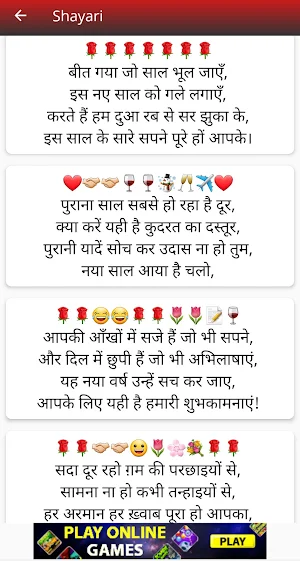 Shayari
🌹🌹🌹🌹🌹🌹🌹
बीत गया जो साल भूल जाएँ,
इस नए साल को गले लगाएँ,
करते हैं हम दुआ रब से सर झुका के,
इस साल के सारे सपने पूरे हों आपके।
❤️🤝🤝🍷🍷⛄🥂✈️❤️
पुराना साल सबसे हो रहा है दूर,
क्या करें यही है कुदरत का दस्तूर,
पुरानी यादें सोच कर उदास ना हो तुम,
नया साल आया है चलो,
🌹🌹😂😂🌹🌹🌷🌷📝🍷
आपकी आँखों में सजे हैं जो भी सपने,
और दिल में छुपी हैं जो भी अभिलाषाएं,
यह नया वर्ष उन्हें सच कर जाए,
आपके लिए यही है हमारी शुभकामनाएं!
🌹🌹🤝🤝😀🌷🌸💐🌹🌹
सदा दूर रहो ग़म की परछाइयों से,
सामना ना हो कभी तन्हाइयों से,
हर अरमान हर ख़्वाब पूरा हो आपका,
PLAY ONLINE
GAMES
PLAY